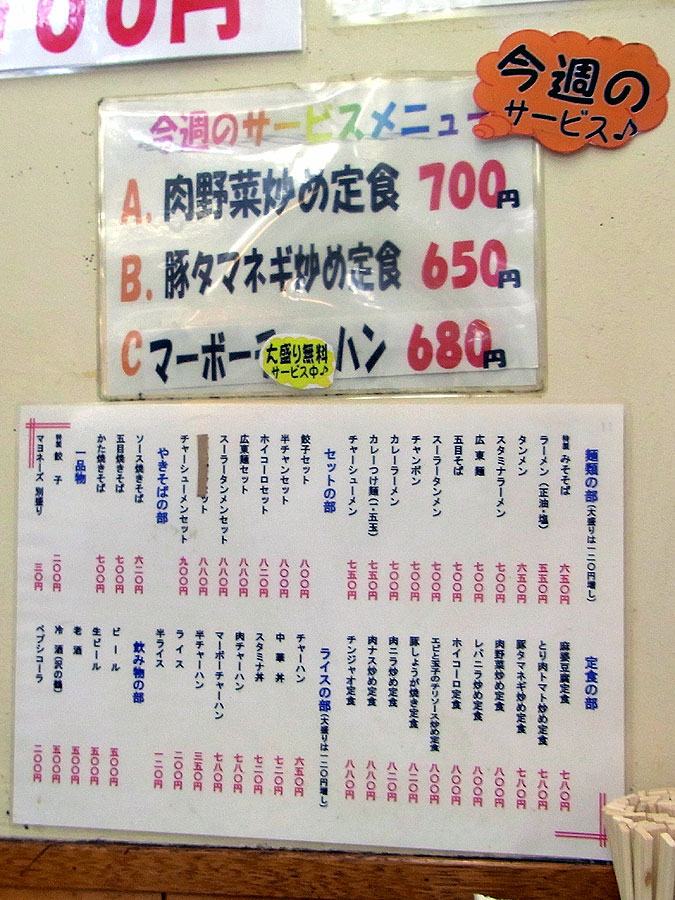 00円
今週の
サービス♪
今週のサービスメニュー
A. 肉野菜炒め定食 700円
B. 豚タマネギ炒め定食 650円
C マーボー ハン 680円
大盛り無料
サービス中♪
麺類の部(大盛りは一二〇円増し)
特製 みそそば 六五〇円
ラーメン(正油・塩) 五五〇円
タンメン 六五〇円
スタミナラーメン 七〇〇円
広東麺 七〇〇円
五目そば 七〇〇円
スーラータンメン 七〇〇円
チャンポン 七〇〇円
カレーラーメン 七〇〇円
カレーつけ麺(一・五玉) 七五〇円
チャーシューメン 七五〇円
セットの部
餃子セット 八〇〇円
半チャンセット 八〇〇円
ホイコーロセット 八二〇円
広東麺セット 八八〇円
スーラータンメンセット 八八〇円
ット 八八〇円
チャーシューメンセット 九〇〇円
やきそばの部
ソース焼きそば 六二〇円
五目焼きそば 七〇〇円
かた焼きそば 七〇〇円
一品物
特製 餃子 二〇〇円
マヨネーズ 別盛り 三〇円
定食の部
麻婆豆腐定食 七八〇円
とり肉トマト炒め定食 七八〇円
豚タマネギ炒め定食 七八〇円
肉野菜炒め定食 八〇〇円
レバニラ炒め定食 八〇〇円
ホイコーロ定食 八〇〇円
エビと玉子のチリソース炒め定食 八〇〇円
豚しょうが焼き定食 八二〇円
肉ニラ炒め定食 八二〇円
肉ナス炒め定食 八八〇円
チンジャオ定食 八八〇円
ライスの部(大盛りは一二〇円増し)
チャーハン 六五〇円
中華丼 七二〇円
スタミナ丼 七二〇円
肉チャーハン 七八〇円
マーボーチャーハン 七八〇円
半チャーハン 三五〇円
ライス 二〇〇円
半ライス 一二〇円
飲み物の部
ビール 五〇〇円
生ビール 五〇〇円
老酒 五〇〇円
冷酒(沢の鶴) 五〇〇円
ペプシコーラ 二〇〇円